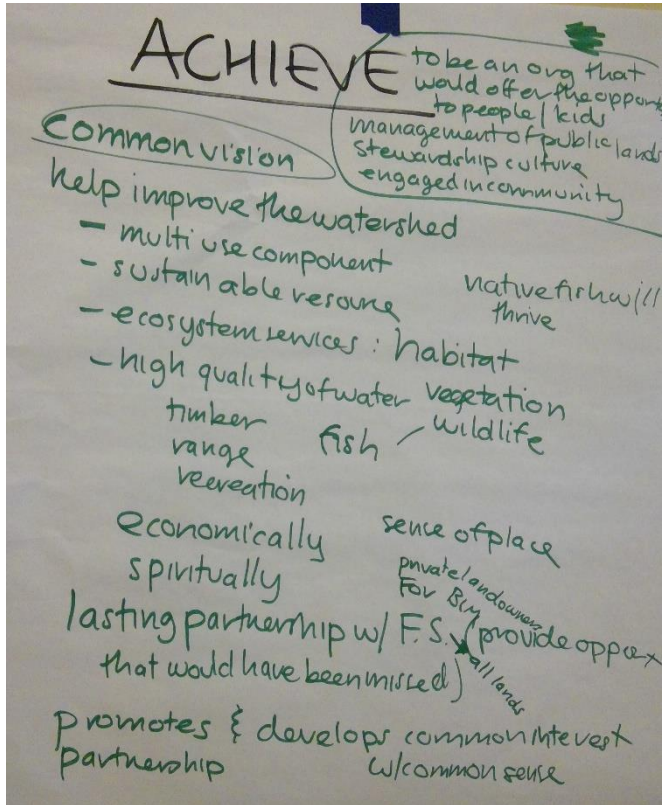 ACHIEVE
to be an org that
would offer the opport
to people / kids
management of public lands
stewardship culture
engaged in community
common vision
help improve the watershed
- multi use component
- sustainable resource
native fish will
thrive
- ecosystem services : habitat
- high quality of water vegetation
timber fish / wildlife
range
recreation
economically sence of place
spiritually
private landowners
For BLM
lasting partnership w/ F.S. (provide oppor
all lands
that would have been missed)
promotes & develops common interest
partnership w/common sense